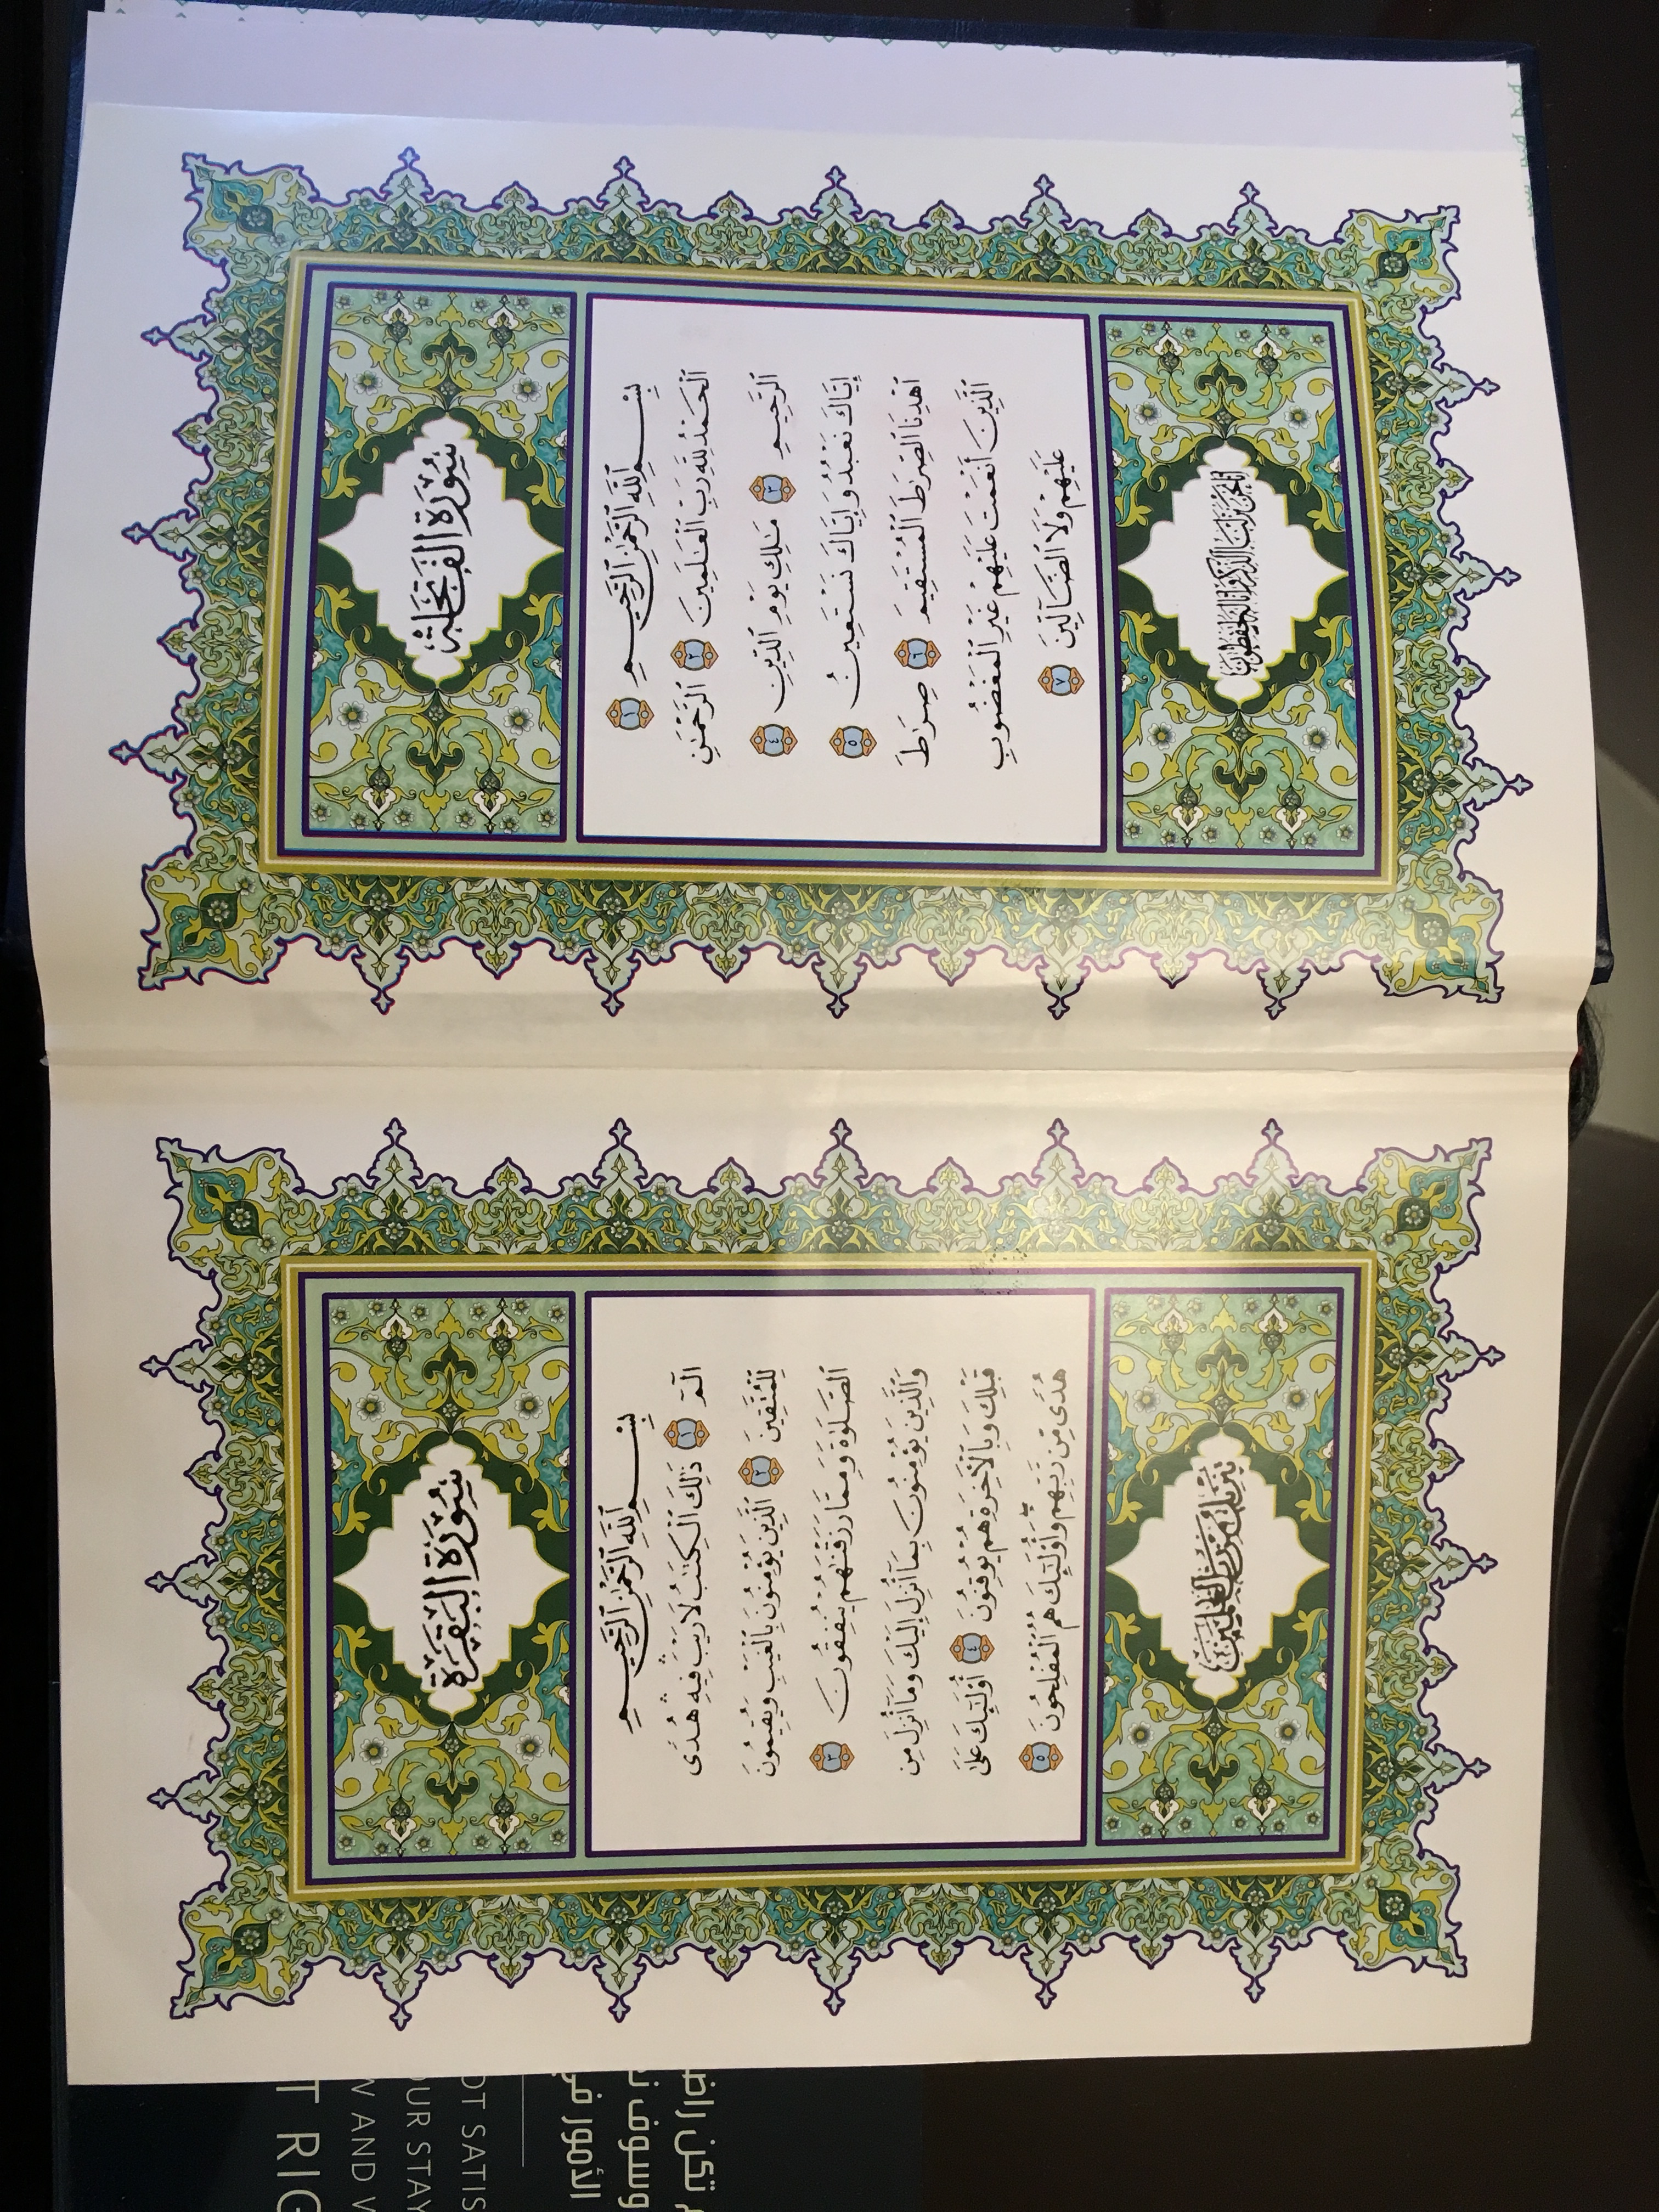 سُورَةُ الفَاتِحَةِ
بِسْمِ ٱللَّهِ ٱلرَّحْمَٰنِ ٱلرَّحِيمِ ١
ٱلْحَمْدُ لِلَّهِ رَبِّ ٱلْعَٰلَمِينَ ٢ ٱلرَّحْمَٰنِ
ٱلرَّحِيمِ ٣ مَٰلِكِ يَوْمِ ٱلدِّينِ ٤
إِيَّاكَ نَعْبُدُ وَإِيَّاكَ نَسْتَعِينُ ٥
ٱهْدِنَا ٱلصِّرَٰطَ ٱلْمُسْتَقِيمَ ٦ صِرَٰطَ
ٱلَّذِينَ أَنْعَمْتَ عَلَيْهِمْ غَيْرِ ٱلْمَغْضُوبِ
عَلَيْهِمْ وَلَا ٱلضَّآلِّينَ ٧
إنا نحن نزلنا الذكر وإنا له لحافظون
سُورَةُ البَقَرَةِ
بِسْمِ ٱللَّهِ ٱلرَّحْمَٰنِ ٱلرَّحِيمِ
الٓمٓ ١ ذَٰلِكَ ٱلْكِتَٰبُ لَا رَيْبَ ۛ فِيهِ ۛ هُدًى
لِّلْمُتَّقِينَ ٢ ٱلَّذِينَ يُؤْمِنُونَ بِٱلْغَيْبِ وَيُقِيمُونَ
ٱلصَّلَوٰةَ وَمِمَّا رَزَقْنَٰهُمْ يُنفِقُونَ ٣
وَٱلَّذِينَ يُؤْمِنُونَ بِمَآ أُنزِلَ إِلَيْكَ وَمَآ أُنزِلَ مِن
قَبْلِكَ وَبِٱلْأَخِرَةِ هُمْ يُوقِنُونَ ٤ أُو۟لَٰٓئِكَ عَلَىٰ
هُدًى مِّن رَّبِّهِمْ ۖ وَأُو۟لَٰٓئِكَ هُمُ ٱلْمُفْلِحُونَ ٥
تنزيل من رب العالمين
تكن راض
وسوف
الأمور في
OT SATIS
OUR STAY
W AND
T RIG